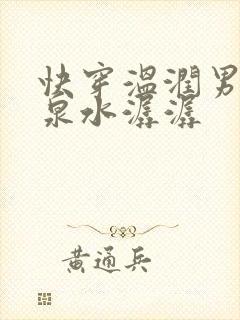 快穿温润男
泉水潺潺
黄通兵